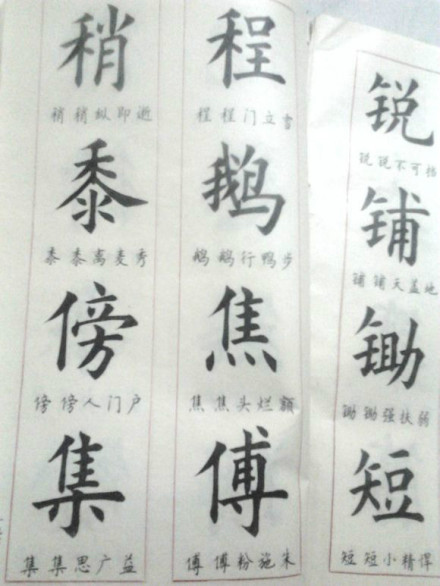 稍
程
锐
稍 稍纵即逝
程 程门立雪
锐 锐不可挡
黍
鹅
铺
黍 黍离麦秀
鹅 鹅行鸭步
铺 铺天盖地
傍
焦
锄
傍 傍人门户
焦 焦头烂额
锄 锄强扶弱
集
傅
短
集 集思广益
傅 傅粉施朱
短 短小精悍